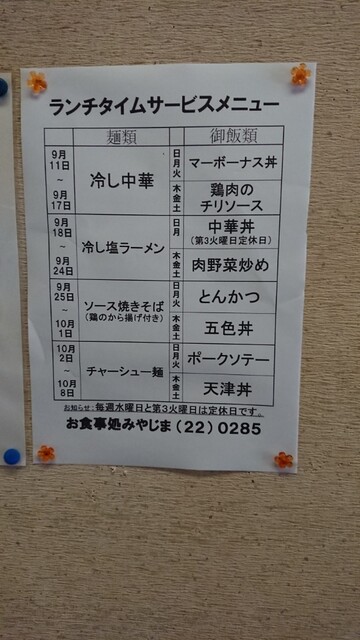 ランチタイムサービスメニュー
麺類 御飯類
9月11日～9月17日 冷し中華 日月火 マーボーナス丼
木金土 鶏肉のチリソース
9月18日～9月24日 冷し塩ラーメン 日月 中華丼
(第3火曜日定休日)
木金土 肉野菜炒め
9月25日～10月1日 ソース焼きそば 日月火 とんかつ
(鶏のから揚げ付き)
木金土 五色丼
10月2日～10月8日 チャーシュー麺 日月火 ポークソテー
木金土 天津丼
お知らせ：毎週水曜日と第3火曜日は定休日です。
お食事処みやじま(22)0285